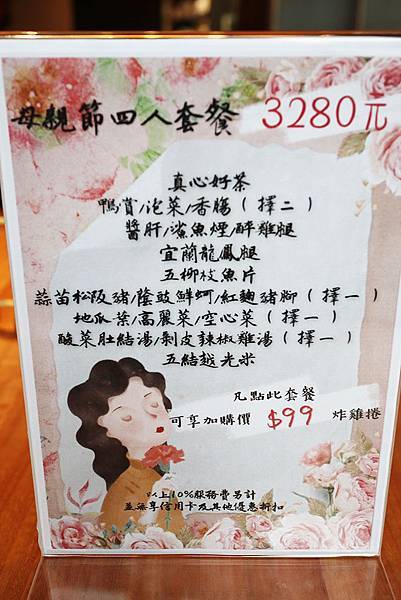 母親節四人套餐 3280元
真心好茶
鴨賞/泡菜/香腸(擇二)
醬肝/鯊魚煙/醉雞腿
宜蘭龍鳳腿
五柳枝魚片
蒜苗松阪豬/蔭豉鮮蚵/紅麴豬腳(擇一)
地瓜葉/高麗菜/空心菜(擇一)
酸菜肚結湯/剝皮辣椒雞湯(擇一)
五結越光米
凡點此套餐
可享加購價 $99 炸雞捲
以上10%服務費另計
並無享信用卡及其他優惠折扣